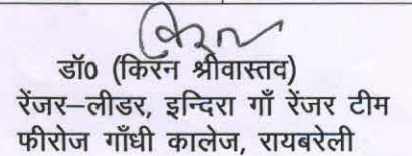 डॉ0 (किरन श्रीवास्तव)
रेंजर–लीडर, इन्दिरा गाँ रेंजर टीम
फीरोज गाँधी कालेज, रायबरेली